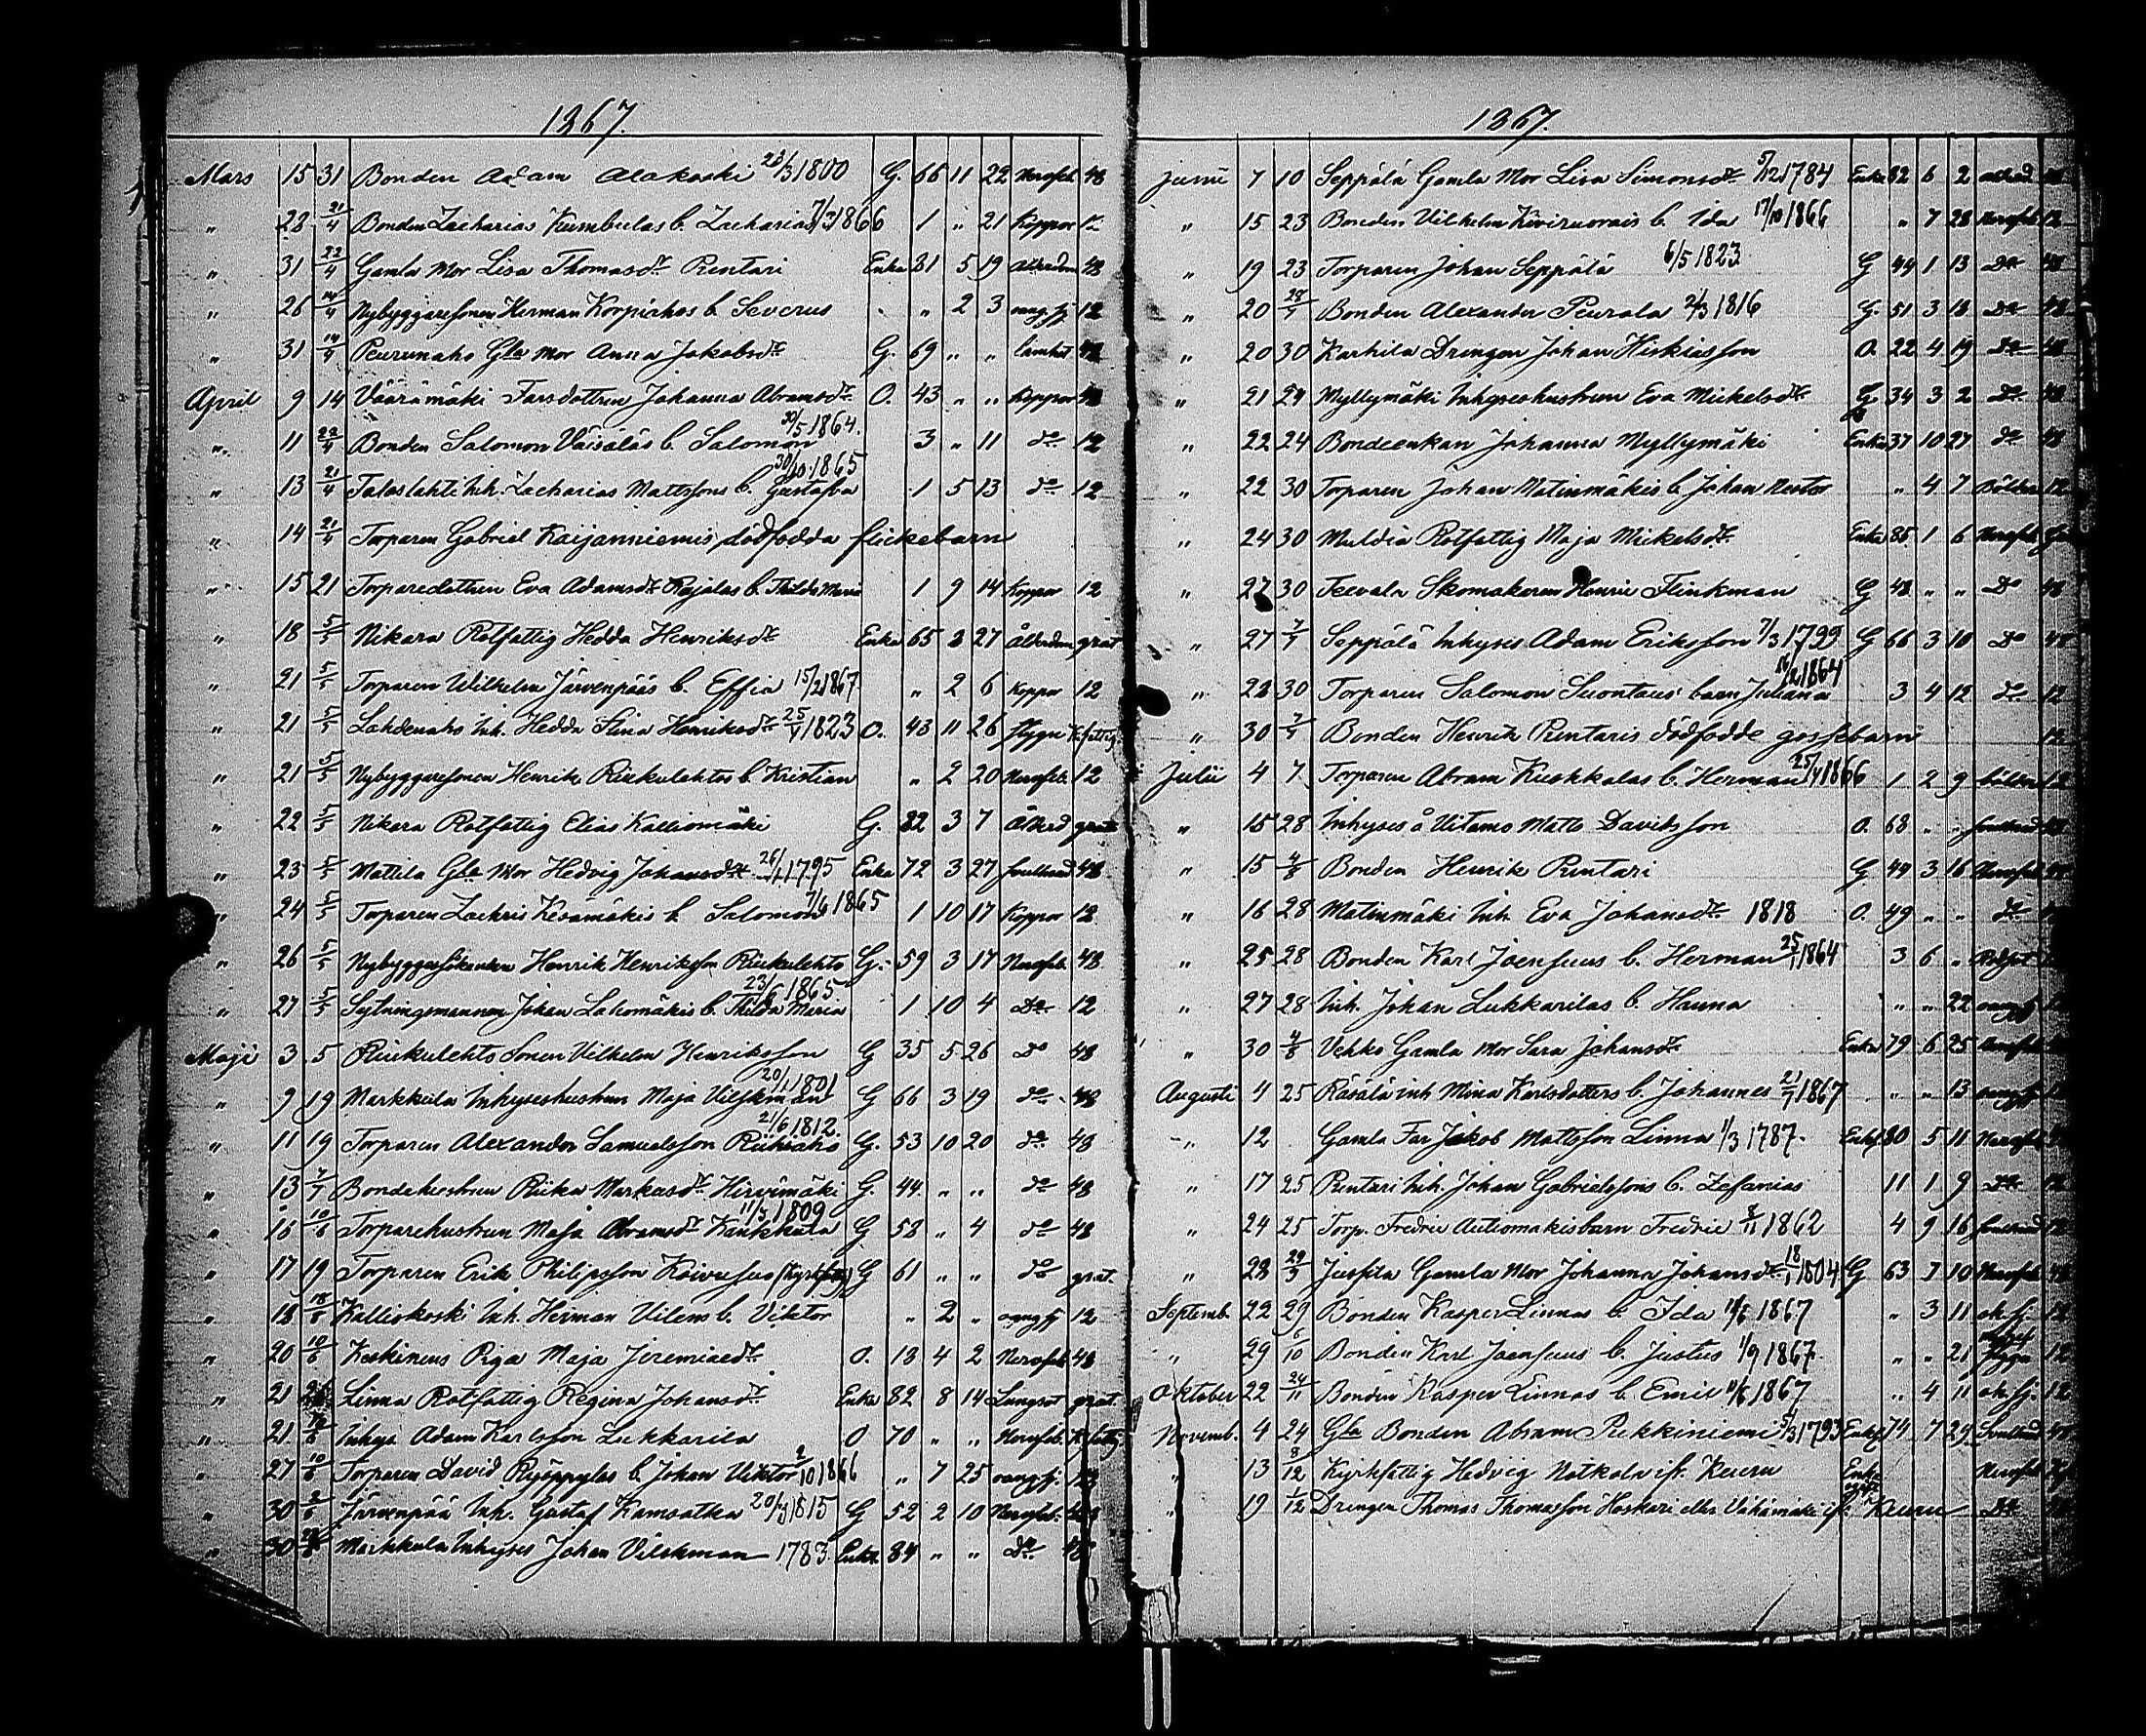 1867.
Mars 15 31 Bonden Adam Alakoski 23/3 1800 G. 66 11 22 Nervfeb. 48
" 28 21/4 Bonden Zacharias Kumbulas b. Zacharias 7/3 1866 1 " 21 Koppor 12
" 31 22/4 Gamla Mor Lisa Thomasdr Rentari Enka 81 5 19 Ålderdom 48
" 26 14/4 Nybyggaresonen Herman Korpiahos b. Severus " 2 3 oang. sj 12
" 31 14/4 Peurunaho Gla Mor Anna Jakobsdr G. 69 " " lamhet 48
April 9 14 Väärämäki Farsdottren Johanna Abramsdr O. 43 " " Koppor 48
" 11 22/4 Bonden Salomon Väisäläs b. Salomon 30/5 1864. 3 " 11 do 12
" 13 21/4 Talaslahti Inh. Zacharias Mattssons b. Gustafva 30/10 1865 1 5 13 do 12
" 14 21/4 Torparen Gabriel Kaijanniemis dödfödda flickebarn
" 15 21 Torparedottren Eva Adamsdr Rajalas b. Thilda Maria 1 9 14 Koppor 12
" 18 5/5 Nikara Rotfattig Hedda Henriksdr Enka 65 3 27 Ålderdom grat
" 21 5/5 Torparen Wilhelm Järvenpääs b. Effia 15/2 1867 " 2 6 Koppor 12
" 21 5/5 Lahdenaho Inh. Hedda Stina Henriksdr 25/4 1823 O. 43 11 26 flygn K.fattig
" 21 5/5 Nybyggaresonen Henrik Riukulehtos b. Kristian " 2 20 Nervfeb. 12
" 22 5/5 Nikara Rotfattig Elias Kalliomäki G. 82 3 7 Ålderd grat
" 23 5/5 Mattila Gla Mor Hedvig Johansdr 26/1 1795 Enka 72 3 27 48
" 24 5/5 Torparen Zachris Kesämäkis b. Salomon 7/6 1865 1 10 17 Koppor 12
" 26 5/5 Henrik Henriksson Riukulehto G. 59 3 17 Nervfeb. 48
" 27 5/5 Sytningsmannen Johan Lahomäkis b. Thilda Maria 23/6 1865 1 10 4 Do 12
Maji 3 5 Riukulehto Sonen Vilhelm Henriksson G 35 5 26 Do 48
" 9 19 Markkula Inhyseshustrun Maja Vilskman 20/1 1801 G 66 3 19 do 48
" 11 19 Torparen Alexander Samuelsson Riihiaho 21/6 1812. G. 53 10 20 do 48
" 13 7/7 Bondehustrun Riika Markusdr Hirvimäki G. 44 " " do 48
" 16 10/6 Torparehustrun Maja Abramsdr Kaukkala 11/5 1809 G 58 " 4 do 48
" 17 19 Torparen Erik Philipsson Koivusuo (Kyrkfattig) G 61 " " do grat.
" 18 18/6 Kalliokoski Inh. Herman Vilens b. Viktor " 2 " oang. sj 12
" 20 10/6 Keskinens Piga Maja Jeremiaedr O. 18 4 2 Nervfeb. 48
" 21 Linna Rotfattig Regina Johansdr Enka 82 8 14 Lungsot grat.
" 21 10/6 Inhyses Adam Karlsson Lukkarila O 70 " " Nervfeb. K.fattig
" 27 10/6 Torparen David Ryöppyläs b. Johan Viktor 2/10 1866 " 7 25 oang. sj. 12
" 30 2/6 Järvenpää Inh. Gustaf Kamsatka 20/3 1815 G 52 2 10 Nervfeb. 48
" 30 Markkula Inhyses Johan Vilskman 1783 Enkl. 84 " " Do 48
1867.
Junii 7 10 Seppälä Gamla Mor Lisa Simonsdr 5/12 1784 Enka 82 6 2 ålderd. 48
" 15 23 Bonden Vilhelm Kiviruorais b. Ida 17/10 1866 " 7 28 Nervfeb. 12
" 19 23 Torparen Johan Seppälä 6/5 1823 G 44 1 13 Do 48
" 20 28/7 Bonden Alexander Peurala 2/3 1816 G. 51 3 18 Do 48
" 20 30 Karhila Drengen Johan Hiskiasson O. 22 4 19 Do 48
" 21 24 Myllymäki Inhyseshustrun Eva Mickelsdr G 34 3 2 Do 48
" 22 24 Bondeenkan Johanna Myllymäki Enka 37 10 27 do 48
" 22 30 Torparen Johan Matinmäkis b. Johan Nestor " 4 7 Bölder 12
" 24 30 Muldia Rotfattig Maja Mickelsdr Enka 85 1 6 Nervfeb.
" 27 30 Teevala Skomakaren Henric Flinkman G 48 " " Do 48
" 27 7/7 Seppälä Inhyses Adam Eriksson 7/3 1799 G 66 3 10 Do 48
" 28 30 Torparen Salomon Suontaus' barn Juliana 16/2 1864 3 4 12 do 12
" 30 7/7 Bonden Henrik Rentaris dödfödde gossebarn 12
Julii 4 7 Torparen Abram Kuukkalas b. Herman 25/4 1866 1 2 9 bölder 12
" 15 28 Inhyses å Uitamo Matts Davidsson O. 68 " "
" 15 4/8 Bonden Henrik Rentari G 49 3 16 Nervfeb. 48
" 16 28 Matinmäki Inh. Eva Johansdr 1818 O. 49 " " do
" 25 28 Bonden Karl Joensuus b. Herman 25/1 1864 3 6 "
" 27 28 Inh. Johan Lukkarilas b. Hanna " " 22 oang. sj
" 30 4/8 Vehko Gamla Mor Sara Johansdr Enka 79 6 25 Nervfeb.
Augusti 4 25 Räsälä inh Mina Karlsdotters b. Johannes 21/7 1867 " " 13 oang. sj
" 12 Gamla Far Jakob Mattsson Linna 1/3 1787. Enkl. 80 5 11 Nervfeb.
" 17 25 Rentari Inh. Johan Gabrielssons b. Zefanias 11 1 9 Do 12
" 24 25 Torp. Fredric Autiomäkis barn Fredric 8/11 1862 4 9 16 12
" 28 29/9 Jussila Gamla Mor Johanna Johansdr 18/1 1804 G 63 7 10 Nervfeb. 48
Septemb. 22 29 Bonden Kasper Linnas b. Ida 11/6 1867 " 3 11 ok. sj. 12
" 29 6/10 Bonden Karl Joensuus b. Justus 1/9 1867. " " 21 12
Oktober 22 24/11 Bonden Kasper Linnas b. Emil 11/6 1867 " 4 11 ok. sj. 12
Novemb. 4 24 Gla Bonden Abram Pekkiniemi 5/3 1793 Enkl. 74 7 29 48
" 13 8/12 Kyrkfattig Hedvig Notkola ifr. Keuru Enka Nervfeb.
" 19 1/12 Drengen Thomas Thomasson Hoskari eller Vähämäki ifr. Keuru Do